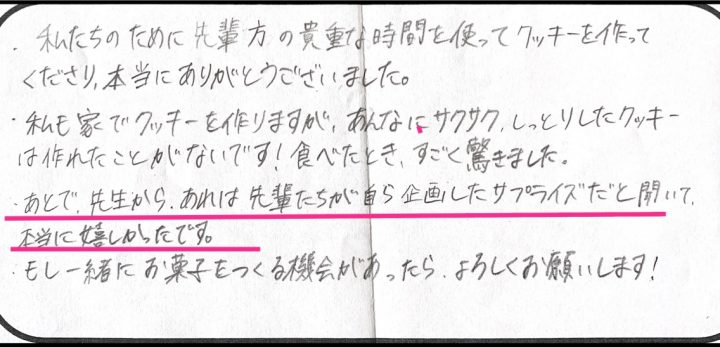 ・私たちのために先輩方の貴重な時間を使ってクッキーを作って
くださり、本当にありがとうございました。
・私も家でクッキーを作りますが、あんなにサクサク、しっとりしたクッキー
は作れたことがないです！食べたとき、すごく驚きました。
・あとで、先生から、あれは先輩たちが自ら企画したサプライズだと聞いて、
本当に嬉しかったです。
・もし一緒にお菓子をつくる機会があったら、よろしくお願いします！